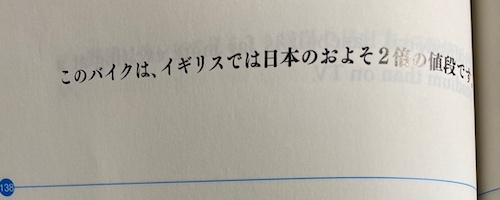 このバイクは、イギリスでは日本のおよそ2倍の値段です
138